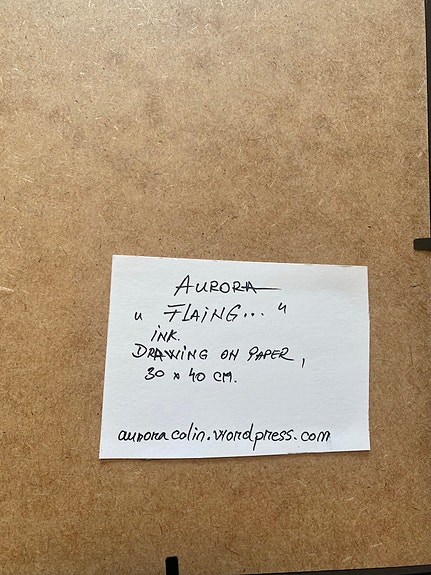 AURORA
" FLAING... "
INK.
DRAWING ON PAPER,
30 x 40 CM.
aurora.colin.wordpress.com